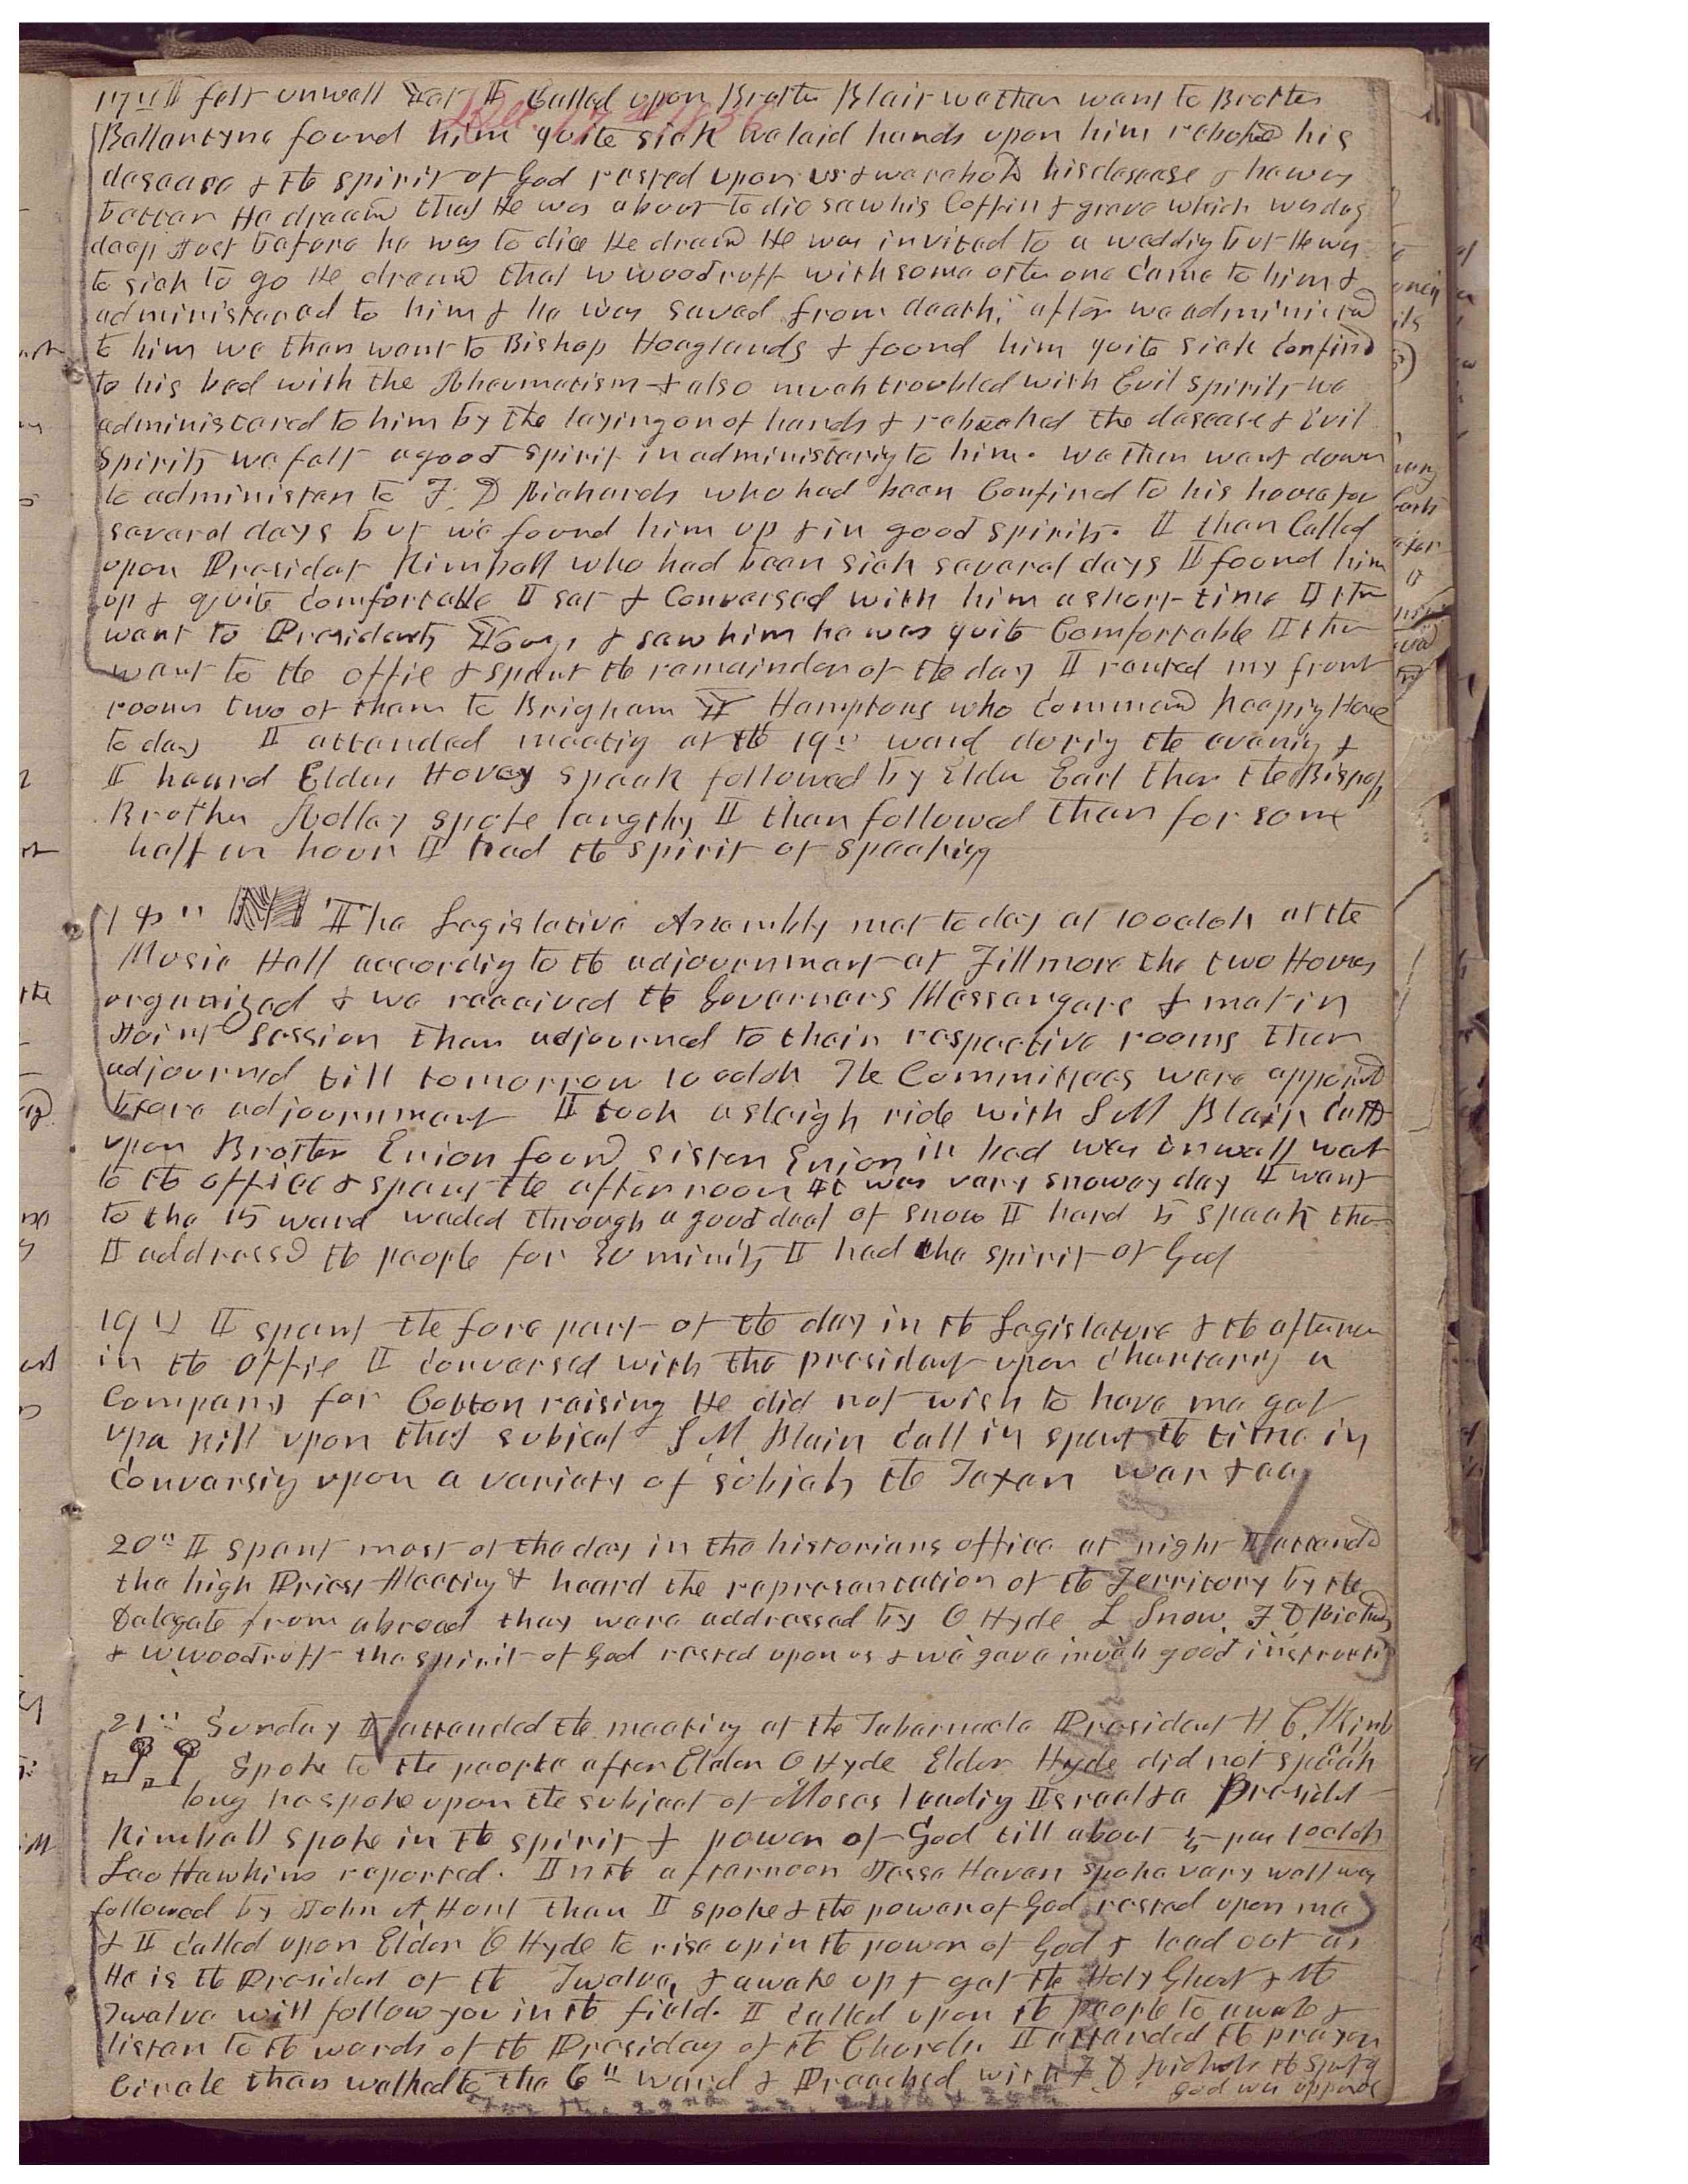 17th I felt unwell yet I Called upon Brother Blair we then went to Brother
Dec. 17th 1856
Ballantyne found him quite sick we laid hands upon him rebuked his
desease & the spirit of God rested upon us & we rebukd his desease & he was
better He dreamd that He was about to die saw his Coffin & grave which was dug
deep Just before he was to die He dreamd He was invited to a wedding but He was
to sick to go He dreamd that W Woodruff with some other one Came to him &
administered to him & he was saved from death, after we administerd
to him we then went to Bishop Hoaglands & found him quite sick Confind
to his bed with the Rheumatism & also much troubled with Evil spirits we
administered to him by the laying on of hands & rebuked the desease & Evil
spirits we felt a good spirit in administering to him. we then went down
to administer to F. D Richards who had been Confined to his house for
severel days but we found him up & in good spirits. I then Called
upon President Kimball who had been sick several days I found him
up & quite Comfortable I sat & Conversed with him a short time I then
went to Presidents Youngs & saw him he was quite Comfortable I then
went to the office & spent the remainder of the day I rented my front
rooms two of them to Brigham Y Hamptons who commencd keeping House
to day I attended meeting at the 19th ward during the evening &
I heard Elder Hovey speak followed by Elder Earl then the Bishop
Brother spoke lengthy I then followed them for some
half an hour I had the spirit of speaking
18th The Legislative Assembly met to day at 10 oclok at the
Music Hall according to the adjournment at Fillmore the two Houses
organized & we received the Governors Messengage & met in
Joint Session then adjourned to their respective rooms then
adjourned till tomorrow 10 oclok The Committees were appointd
before adjournment I took a sleigh ride with S M Blair Calld
upon Brother Enion found sister Enion in bed was unwell went
to the office & spent the afternoon it was very snowey day I went
to the 15 ward waded through a good deal of snow I heard speak then
I addressd the people for 30 minits I had the spirit of God
19th I spent the fore part of the day in the Legislature & the afternoon
in the office I conversed with the president upon chartering a
Company for Cotton raising He did not wish to have me get
up a bill upon that subject S M Blair call in spent the time in
conversing upon a variety of subjects the Texan war &cc
20th I spent most of the day in the historians office at night I attended
the high Priest Meeting & heard the representation of the Territory by the
Delegate from abroad they were addressed by O Hyde L Snow F D Richards
& W Woodruff the spirit of God rested upon us & we gave much good instruction
21st Sunday I attended the meeting at the Tabernacle President H. C. Kimb
Spoke to the people after Elder O Hyde Elder Hyde did not speak
long he spoke upon the subject of Moses leading Israel &c President
Kimball spoke in the spirit & power of God till about ½ past 1 oclok
Leo Hawkins reported. In the afternoon Jesse Haven spoke very well was
followed by John A Hunt then I spoke & the power of God rested upon me
& I called upon Elder O Hyde to rise up in the power of God & lead out as
He is the President of the Twelve, & awake up & get the Holy Ghost & the
Twelve will follow you in the field. I called upon the people to awake &
listen to the words of the Presidency of the Church. I attended the prayer
Circle then walked to the 6th ward & Preached with F. D. Richards the Spirit of
god was upon us